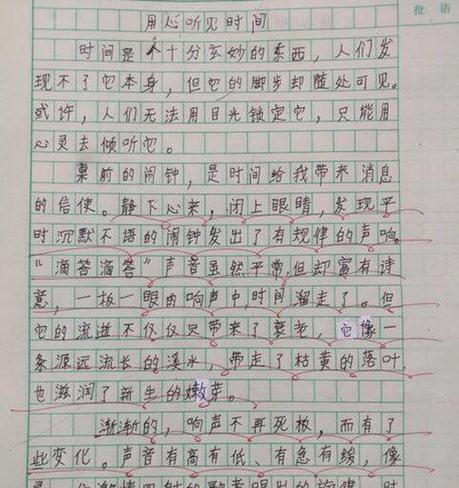 批 语
用心听见时间
时间是个十分玄妙的东西，人们发
现不了它本身，但它的脚步却随处可见。
或许，人们无法用目光锁定它，只能用
心灵去倾听它。
桌前的闹钟，是时间给我带来消息
的信使。静下心来，闭上眼睛，发现平
时沉默不语的闹钟发出了有规律的声响。
“滴答滴答”声音虽然平常，但却富有诗
意，一板一眼的响声中，时间溜走了。但
它的流逝不仅仅只带来了衰老，它像一
条源远流长的溪水，带走了枯黄的落叶，
也滋润了新生的嫩芽。
渐渐的，响声不再死板，而有了
些变化。声音有高有低、有急有缓，像